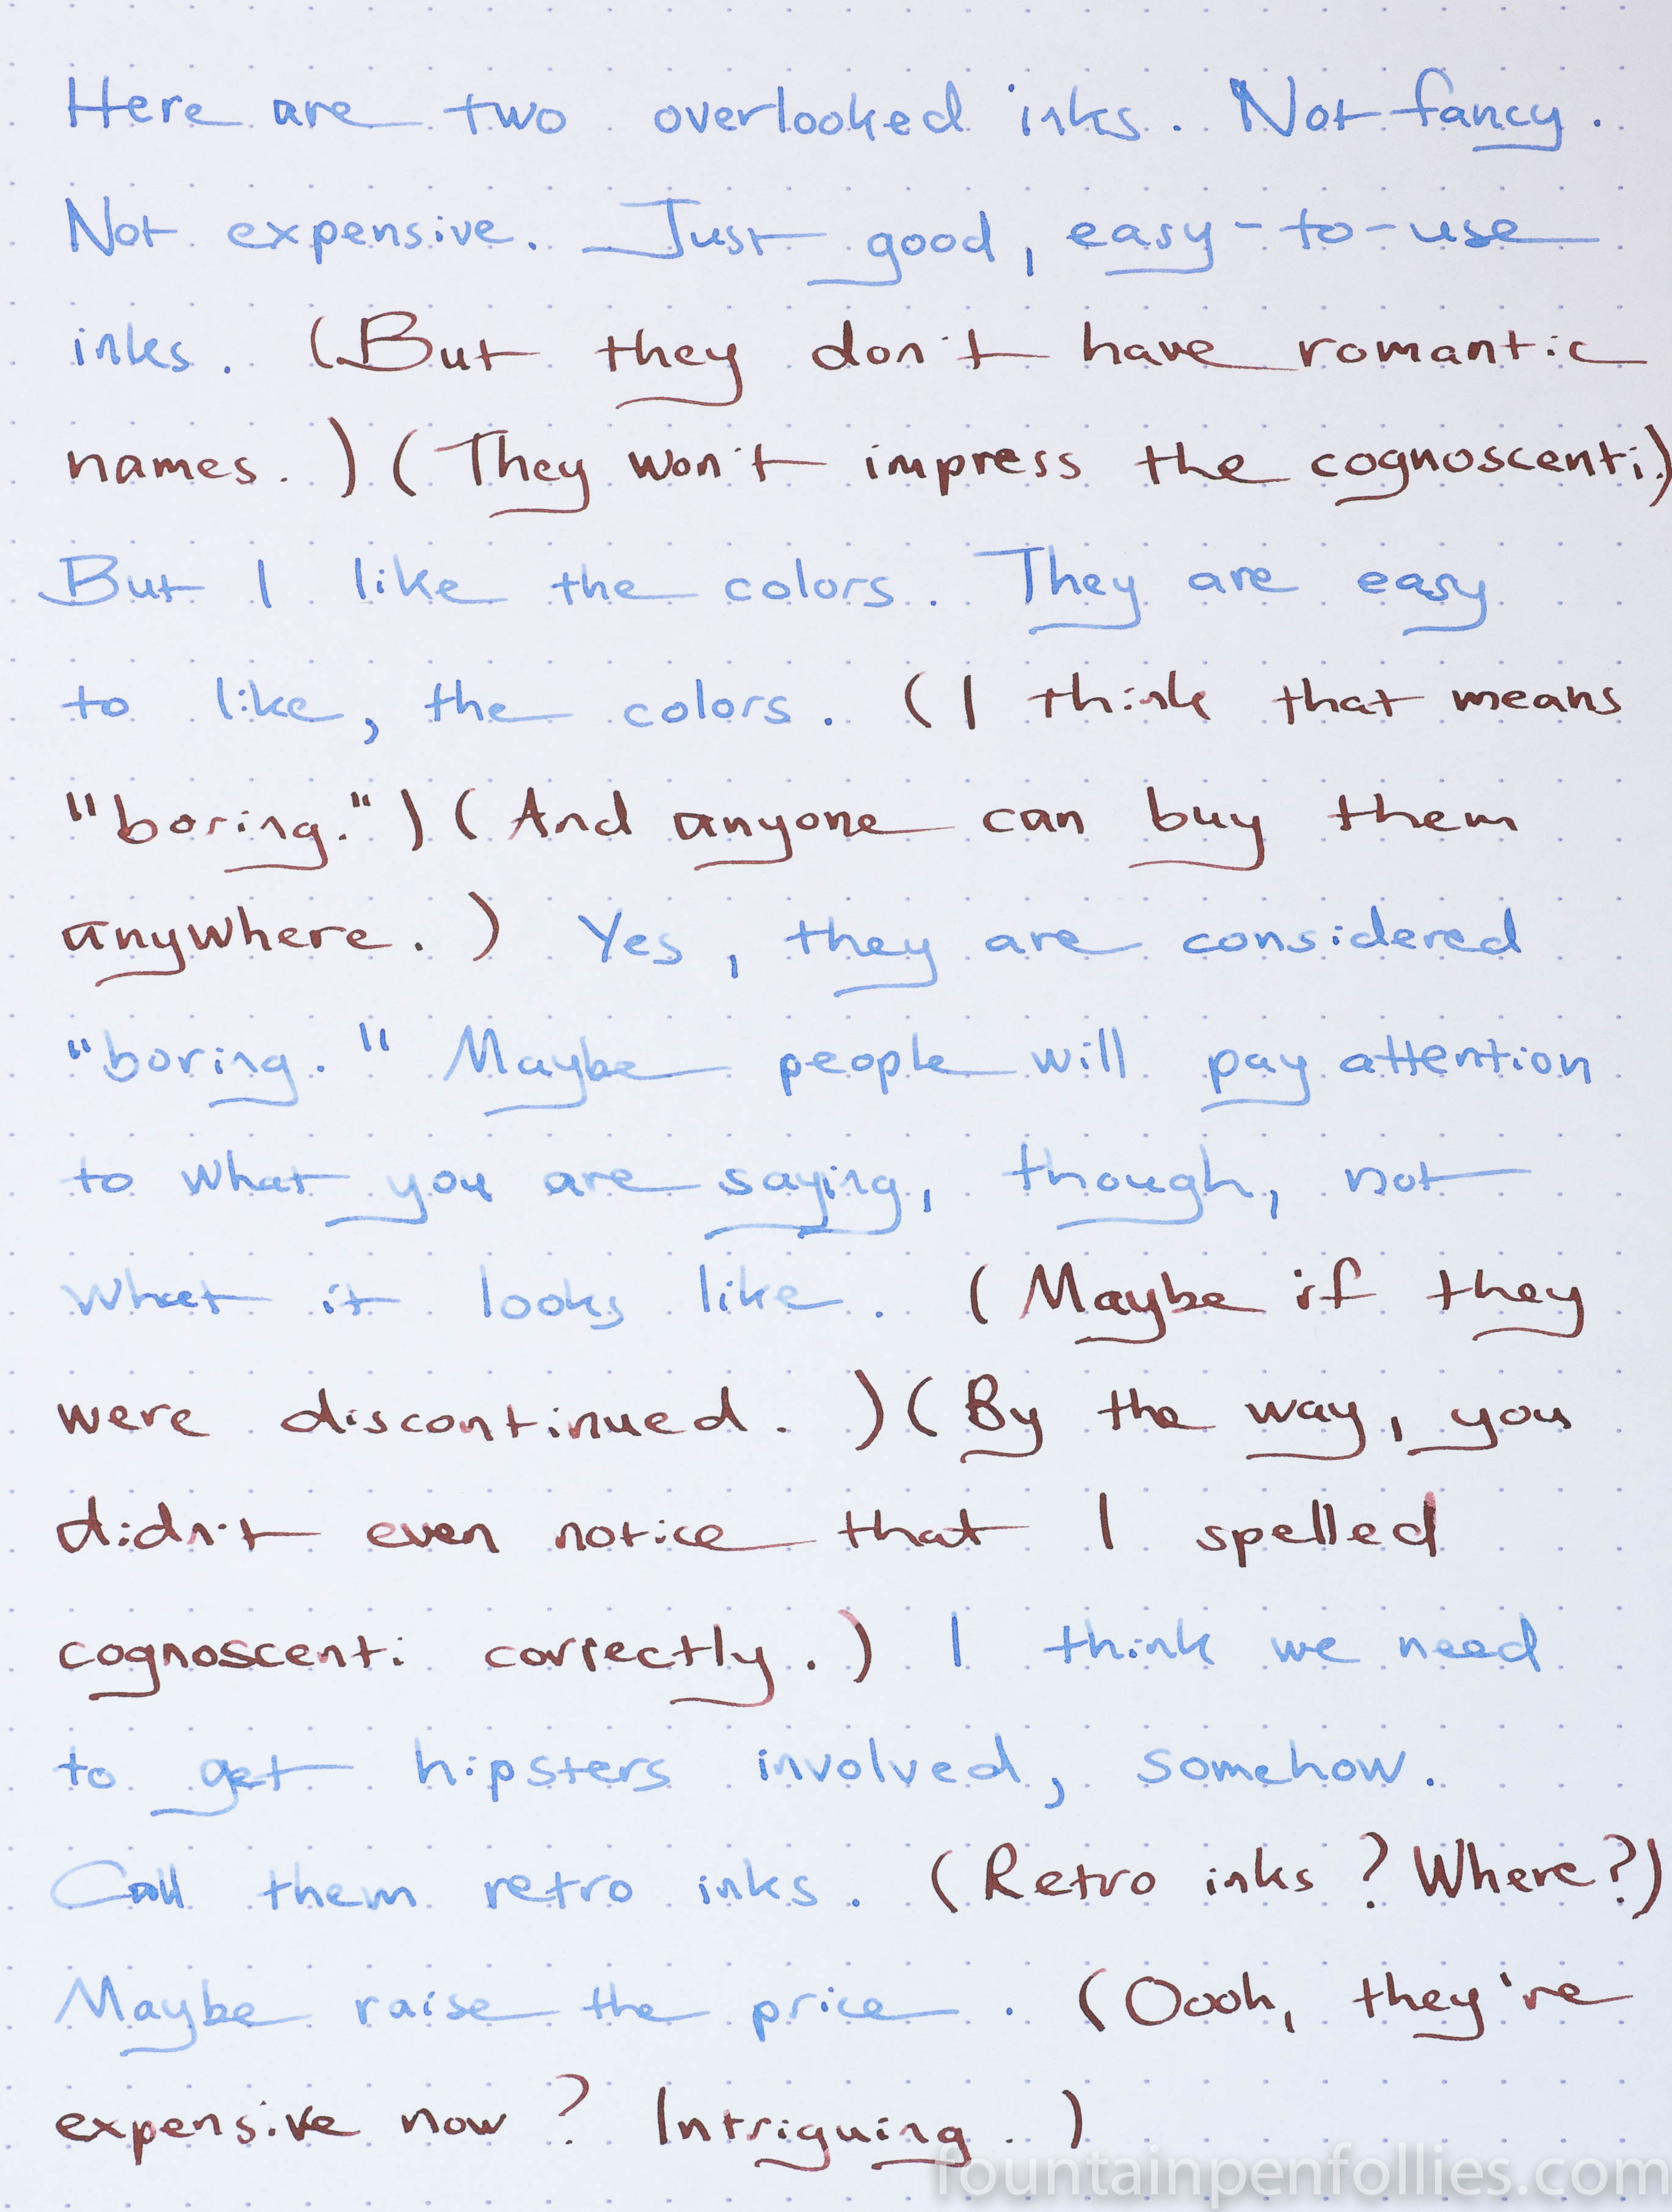 Here are two overlooked inks. Not fancy.
Not expensive. Just good, easy-to-use
inks. (But they don't have romantic
names.) (They won't impress the cognoscenti.)
But I like the colors. They are easy
to like, the colors. (I think that means
"boring.") (And anyone can buy them
anywhere.) Yes, they are considered
"boring." Maybe people will pay attention
to what you are saying, though, not
what it looks like. (Maybe if they
were discontinued.) (By the way, you
didn't even notice that I spelled
cognoscenti correctly.) I think we need
to get hipsters involved, somehow.
Call them retro inks. (Retro inks? Where?)
Maybe raise the price. (Oooh, they're
expensive now? Intriguing.)
fountainpenfollies.com